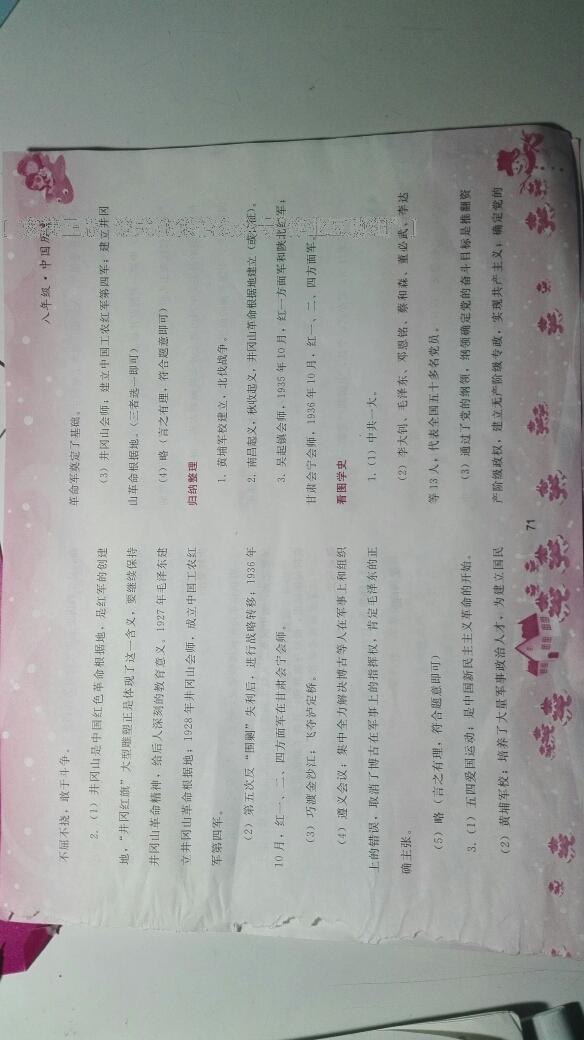 八年级·中国历
不屈不挠，敢于斗争。
2.（1）井冈山是中国红色革命根据地，是红军的创建
地，“井冈红旗”大型雕塑正是体现了这一含义，要继续保持
井冈山革命精神，给后人深刻的教育意义。1927年毛泽东建
立井冈山革命根据地；1928年井冈山会师，成立中国工农红
军第四军。
（2）第五次反“围剿”失利后，进行战略转移；1936年
10月，红一、二、四方面军在甘肃会宁会师。
（3）巧渡金沙江；飞夺泸定桥。
（4）遵义会议；集中全力解决博古等人在军事上和组织
上的错误，取消了博古在军事上的指挥权，肯定毛泽东的正
确主张。
（5）略（言之有理，符合题意即可）
3.（1）五四爱国运动；是中国新民主主义革命的开始。
（2）黄埔军校；培养了大量军事政治人才，为建立国民
革命军奠定了基础。
（3）井冈山会师；建立中国工农红军第四军；建立井冈
山革命根据地。（三者选一即可）
（4）略（言之有理，符合题意即可）
归纳整理
1. 黄埔军校建立，北伐战争。
2. 南昌起义，秋收起义，井冈山革命根据地建立（或长征）。
3. 吴起镇会师，1935年10月，红一方面军和陕北红军；
甘肃会宁会师，1936年10月，红一、二、四方面军。
看图学史
1.（1）中共一大。
（2）李大钊、毛泽东、邓恩铭、蔡和森、董必武、李达
等13人，代表全国五十多名党员。
（3）通过了党的纲领，纲领确定党的奋斗目标是推翻资
产阶级政权，建立无产阶级专政，实现共产主义；确定党的
71